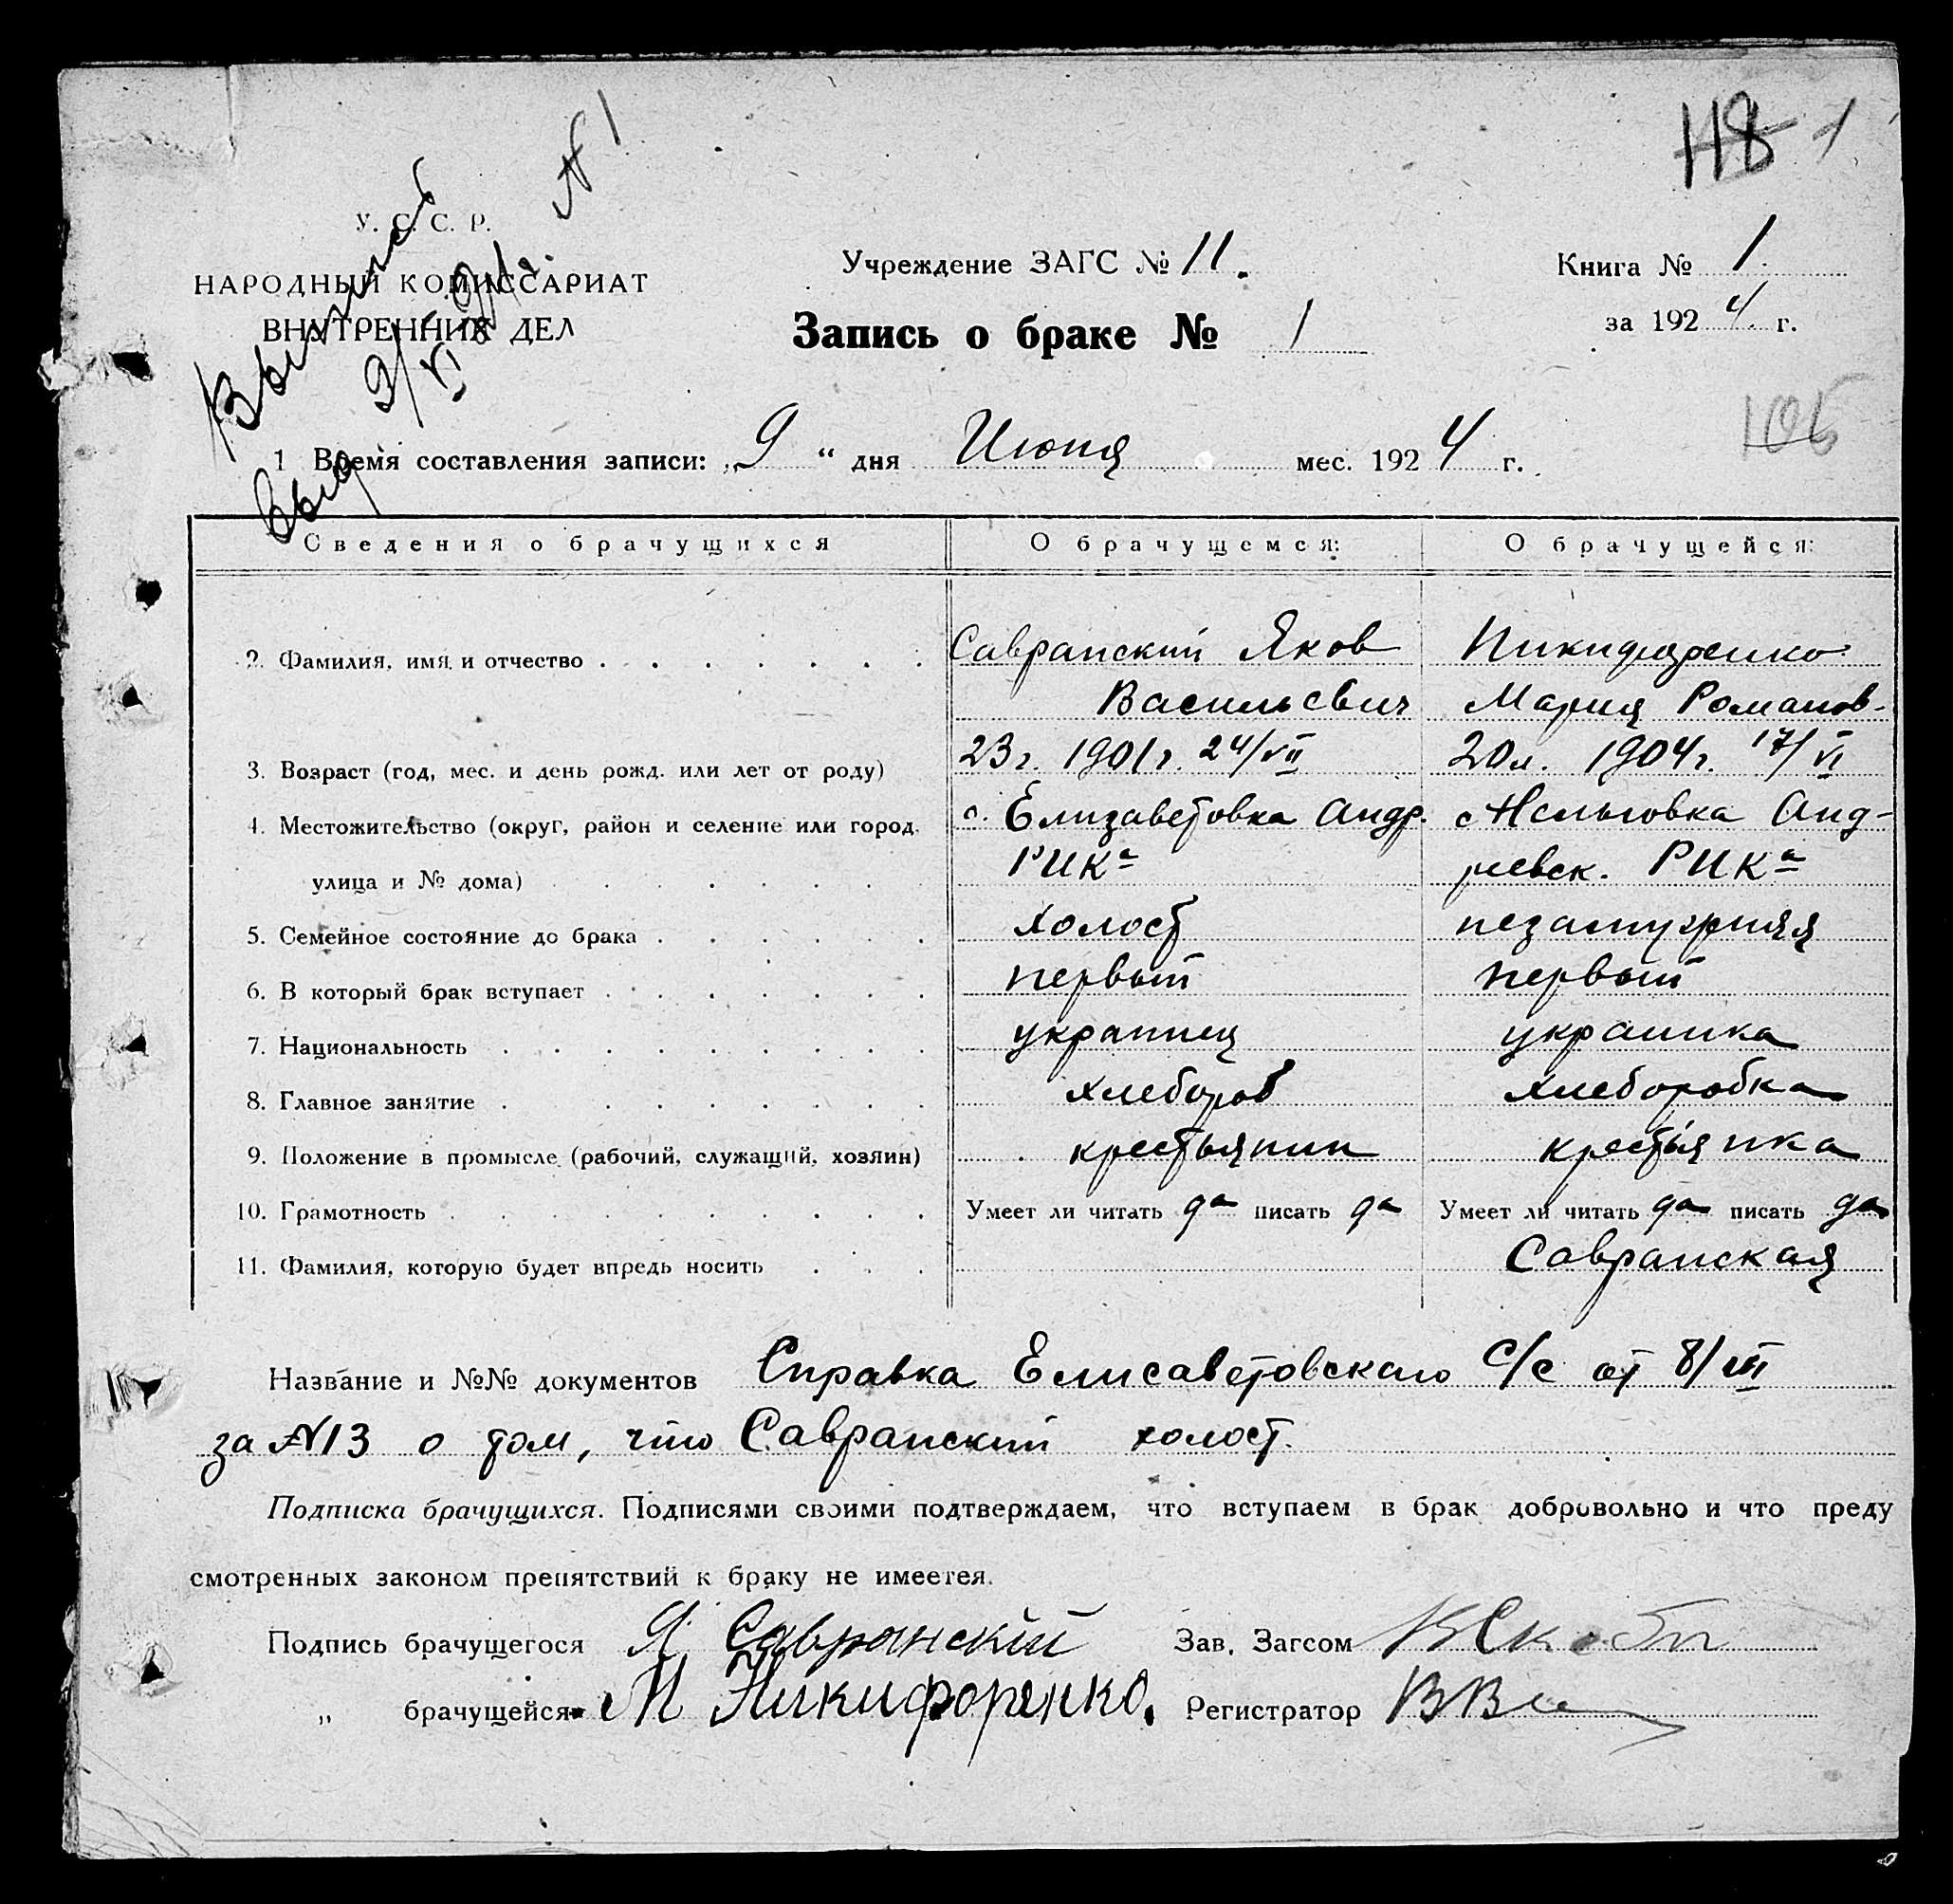 118 1
Выпись
выд 9/VI 24 г. №1
У. С. С. Р.
НАРОДНЫЙ КОМИССАРИАТ
ВНУТРЕННИХ ДЕЛ
Учреждение ЗАГС № 11.
Запись о браке № 1
Книга № 1.
за 1924 г.
106
1 Время составления записи: „9“ дня Июня мес. 1924 г.
Сведения о брачущихся О брачущемся: О брачущейся:
2. Фамилия, имя и отчество Савранский Яков Никифоренко
Васильевич Мария Романов-
3. Возраст (год, мес. и день рожд. или лет от роду) 23 г. 1901 г. 24/VII 20 л. 1904 г. 17/VI
4. Местожительство (округ, район и селение или город, с. Елизаветовка Андр. с Анд-
улица и № дома) РИКа реевск. РИКа
5. Семейное состояние до брака холост незамужняя
6. В который брак вступает первый первый
7. Национальность украинец украинка
8. Главное занятие хлебороб хлеборобка
9. Положение в промысле (рабочий, служащий, хозяин) крестьянин крестьянка
10. Грамотность Умеет ли читать да писать да Умеет ли читать да писать да
11. Фамилия, которую будет впредь носить Савранская
Название и №№ документов Справка Елисаветовского С/с от 8/VI
за №13 о том, что Савранский холост.
Подписка брачущихся. Подписями своими подтверждаем, что вступаем в брак добровольно и что преду
смотренных законом препятствий к браку не имеется.
Подпись брачущегося Я. Савранский Зав. Загсом
„ брачущейся М Никифоренко. Регистратор